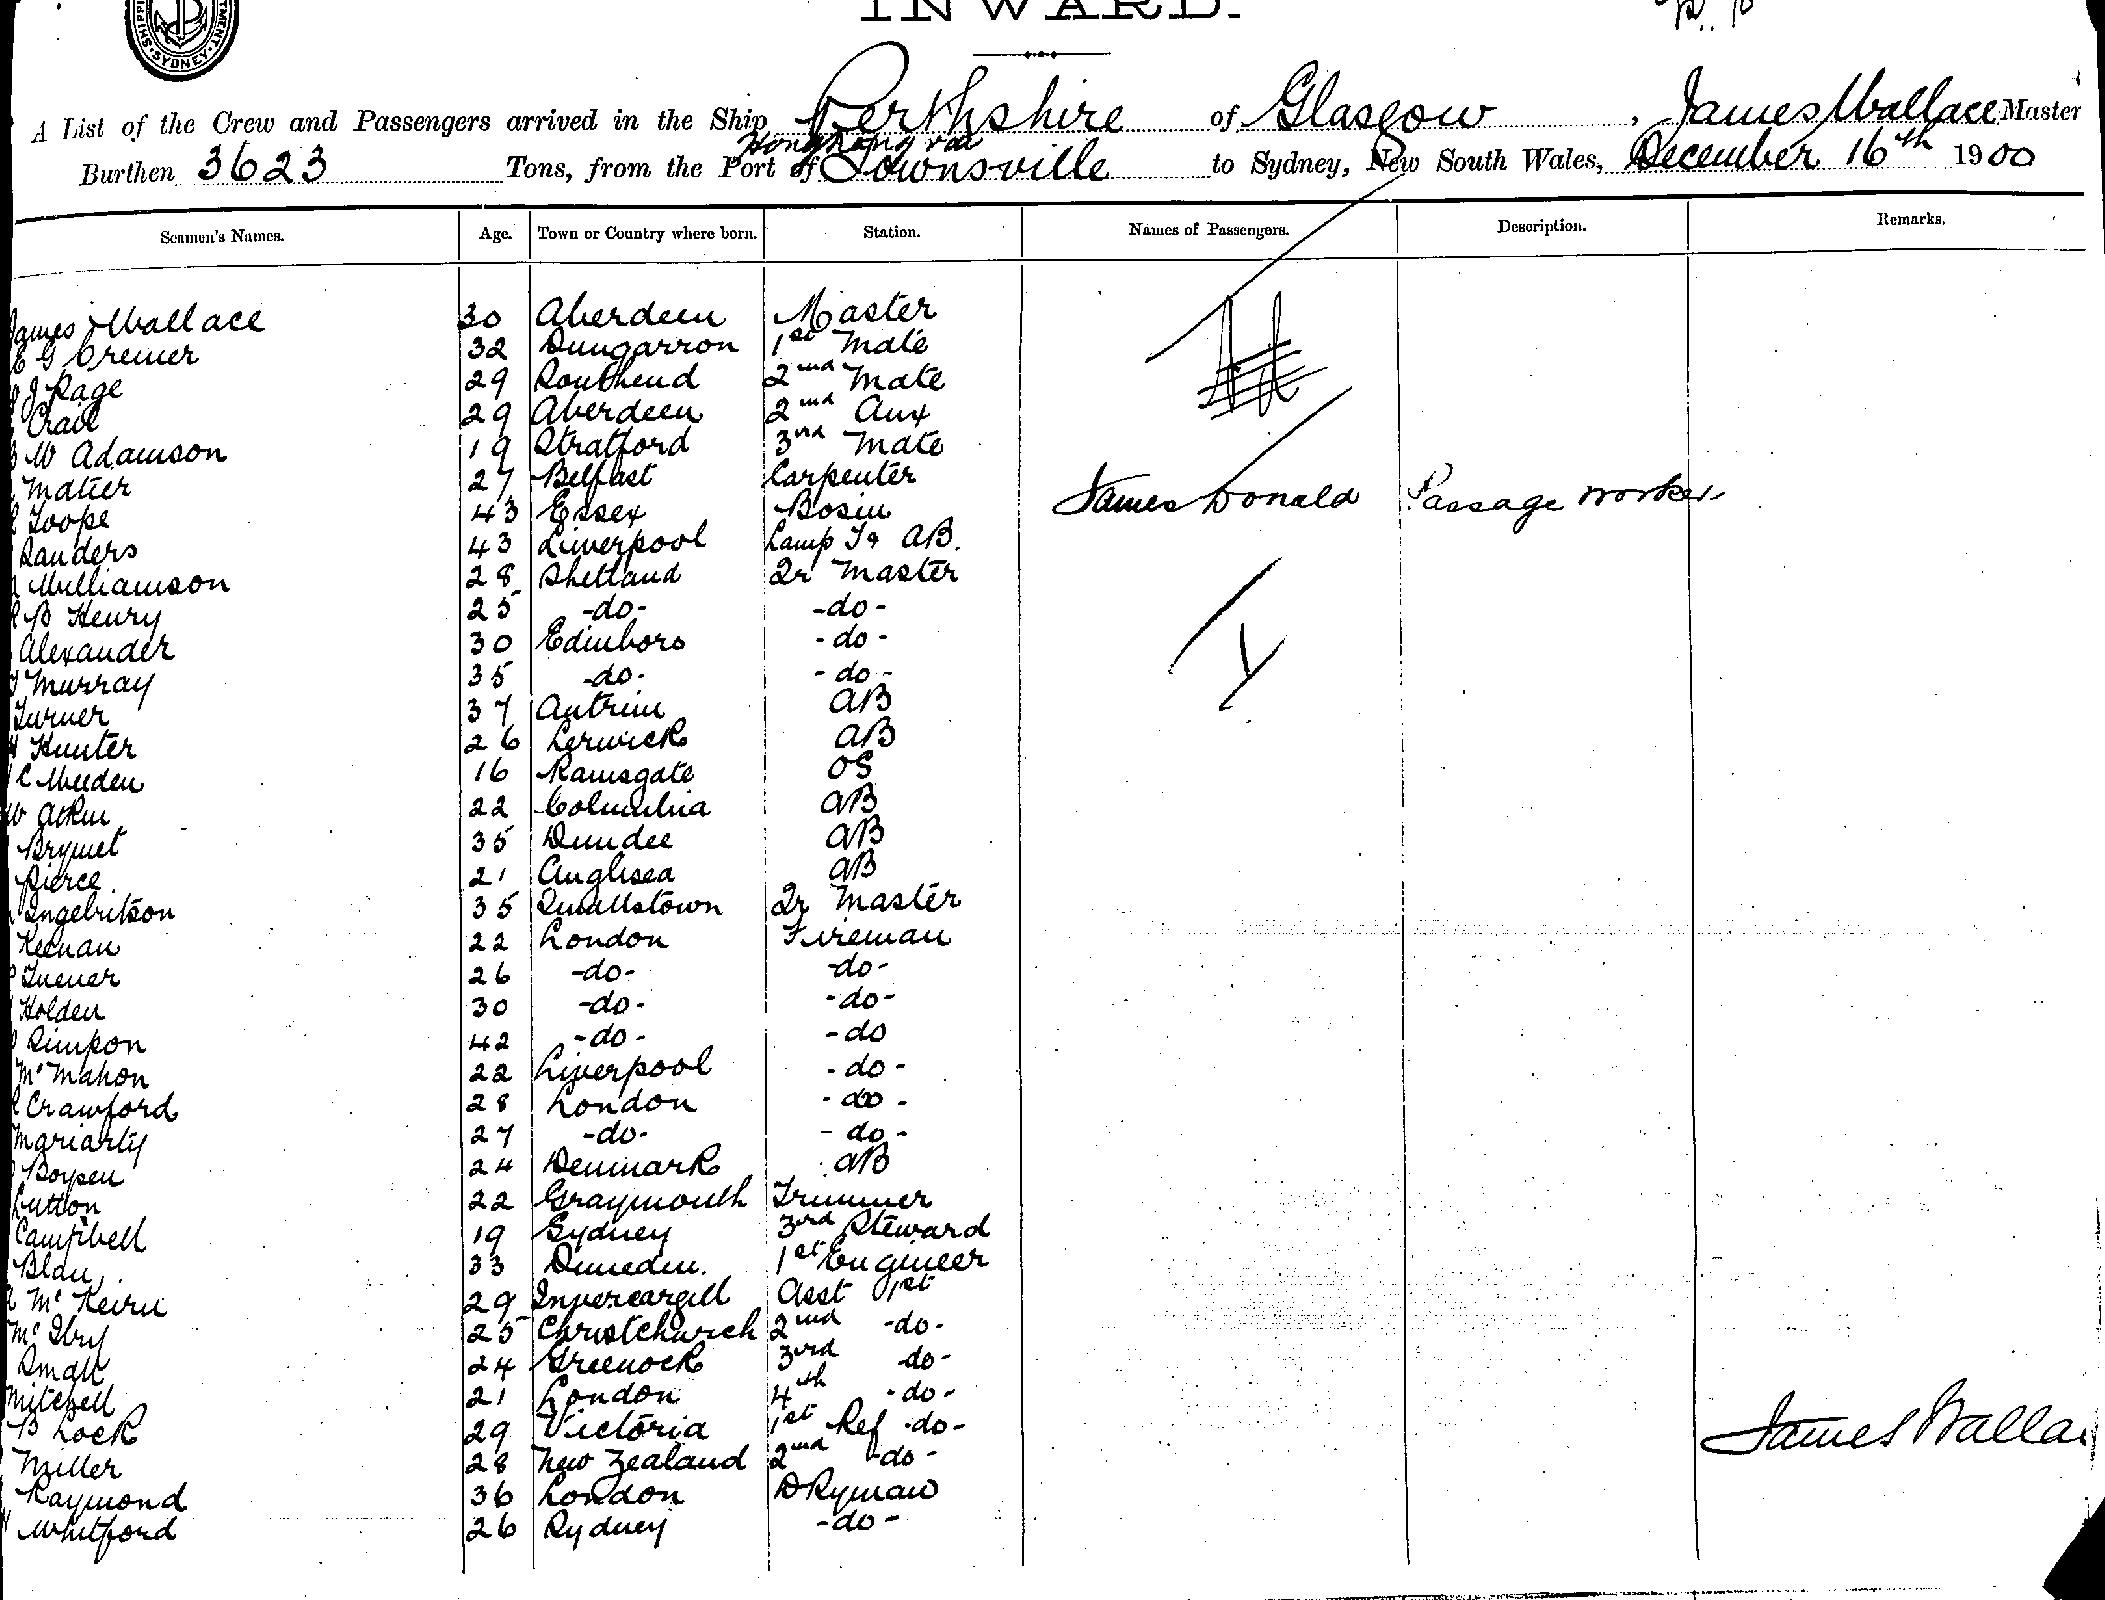 INWARD.
A List of the Crew and Passengers arrived in the Ship Perthshire of Glasgow, James Wallace Master
Hong Kong via
Burthen 3623 Tons, from the Port of Townsville to Sydney, New South Wales, December 16th 1900
Seamen's Names. Age. Town or Country where born. Station. Names of Passengers. Description. Remarks.
James Wallace 30 Aberdeen Master
E G Cremer 32 Dungarron 1st Mate
J Page 29 Southend 2nd Mate
29 Aberdeen 2nd Aux
W Adamson 19 Stratford 3rd Mate
Matier 27 Belfast Carpenter
Toope 43 Essex Bosin James Donald Passage worker
Sanders 43 Liverpool Lamp Tr AB.
Williamson 28 Shetland Qr Master
B Henry 25 -do- -do-
Alexander 30 Edinboro -do-
Murray 35 -do- -do-
Turner 37 Antrim AB
Hunter 26 Lerwick AB
C Weeden 16 Ramsgate OS
22 Columbia AB
35 Dundee AB
Pierce 21 Anglisea AB
Ingebritson 35 Smallstown Qr Master
Keenan 22 London Fireman
26 -do- -do-
Holden 30 -do- -do-
Simpson 42 -do- -do
McMahon 22 Liverpool -do-
Crawford 28 London -do-
Mariarty 27 -do- -do-
Boysen 24 Denmark AB
Lutton 22 Graymouth Trimmer
Campbell 19 Sydney 3rd Steward
33 Dunedin. 1st Engineer
29 Invercargill Asst 1st
25 Christchurch 2nd -do-
Small 24 Greenock 3rd -do-
Mitchell 21 London 4th -do-
B Lock 29 Victoria 1st Ref -do-
James Walla
Miller 28 New Zealand 2nd -do-
Raymond 36 London DKyman
Whitford 26 Sydney -do-